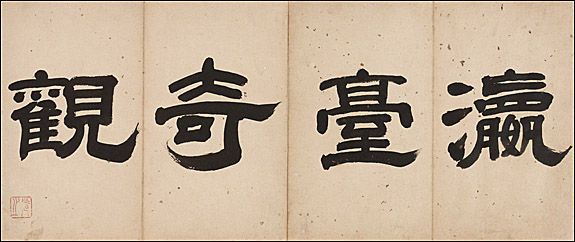 瀛臺奇觀